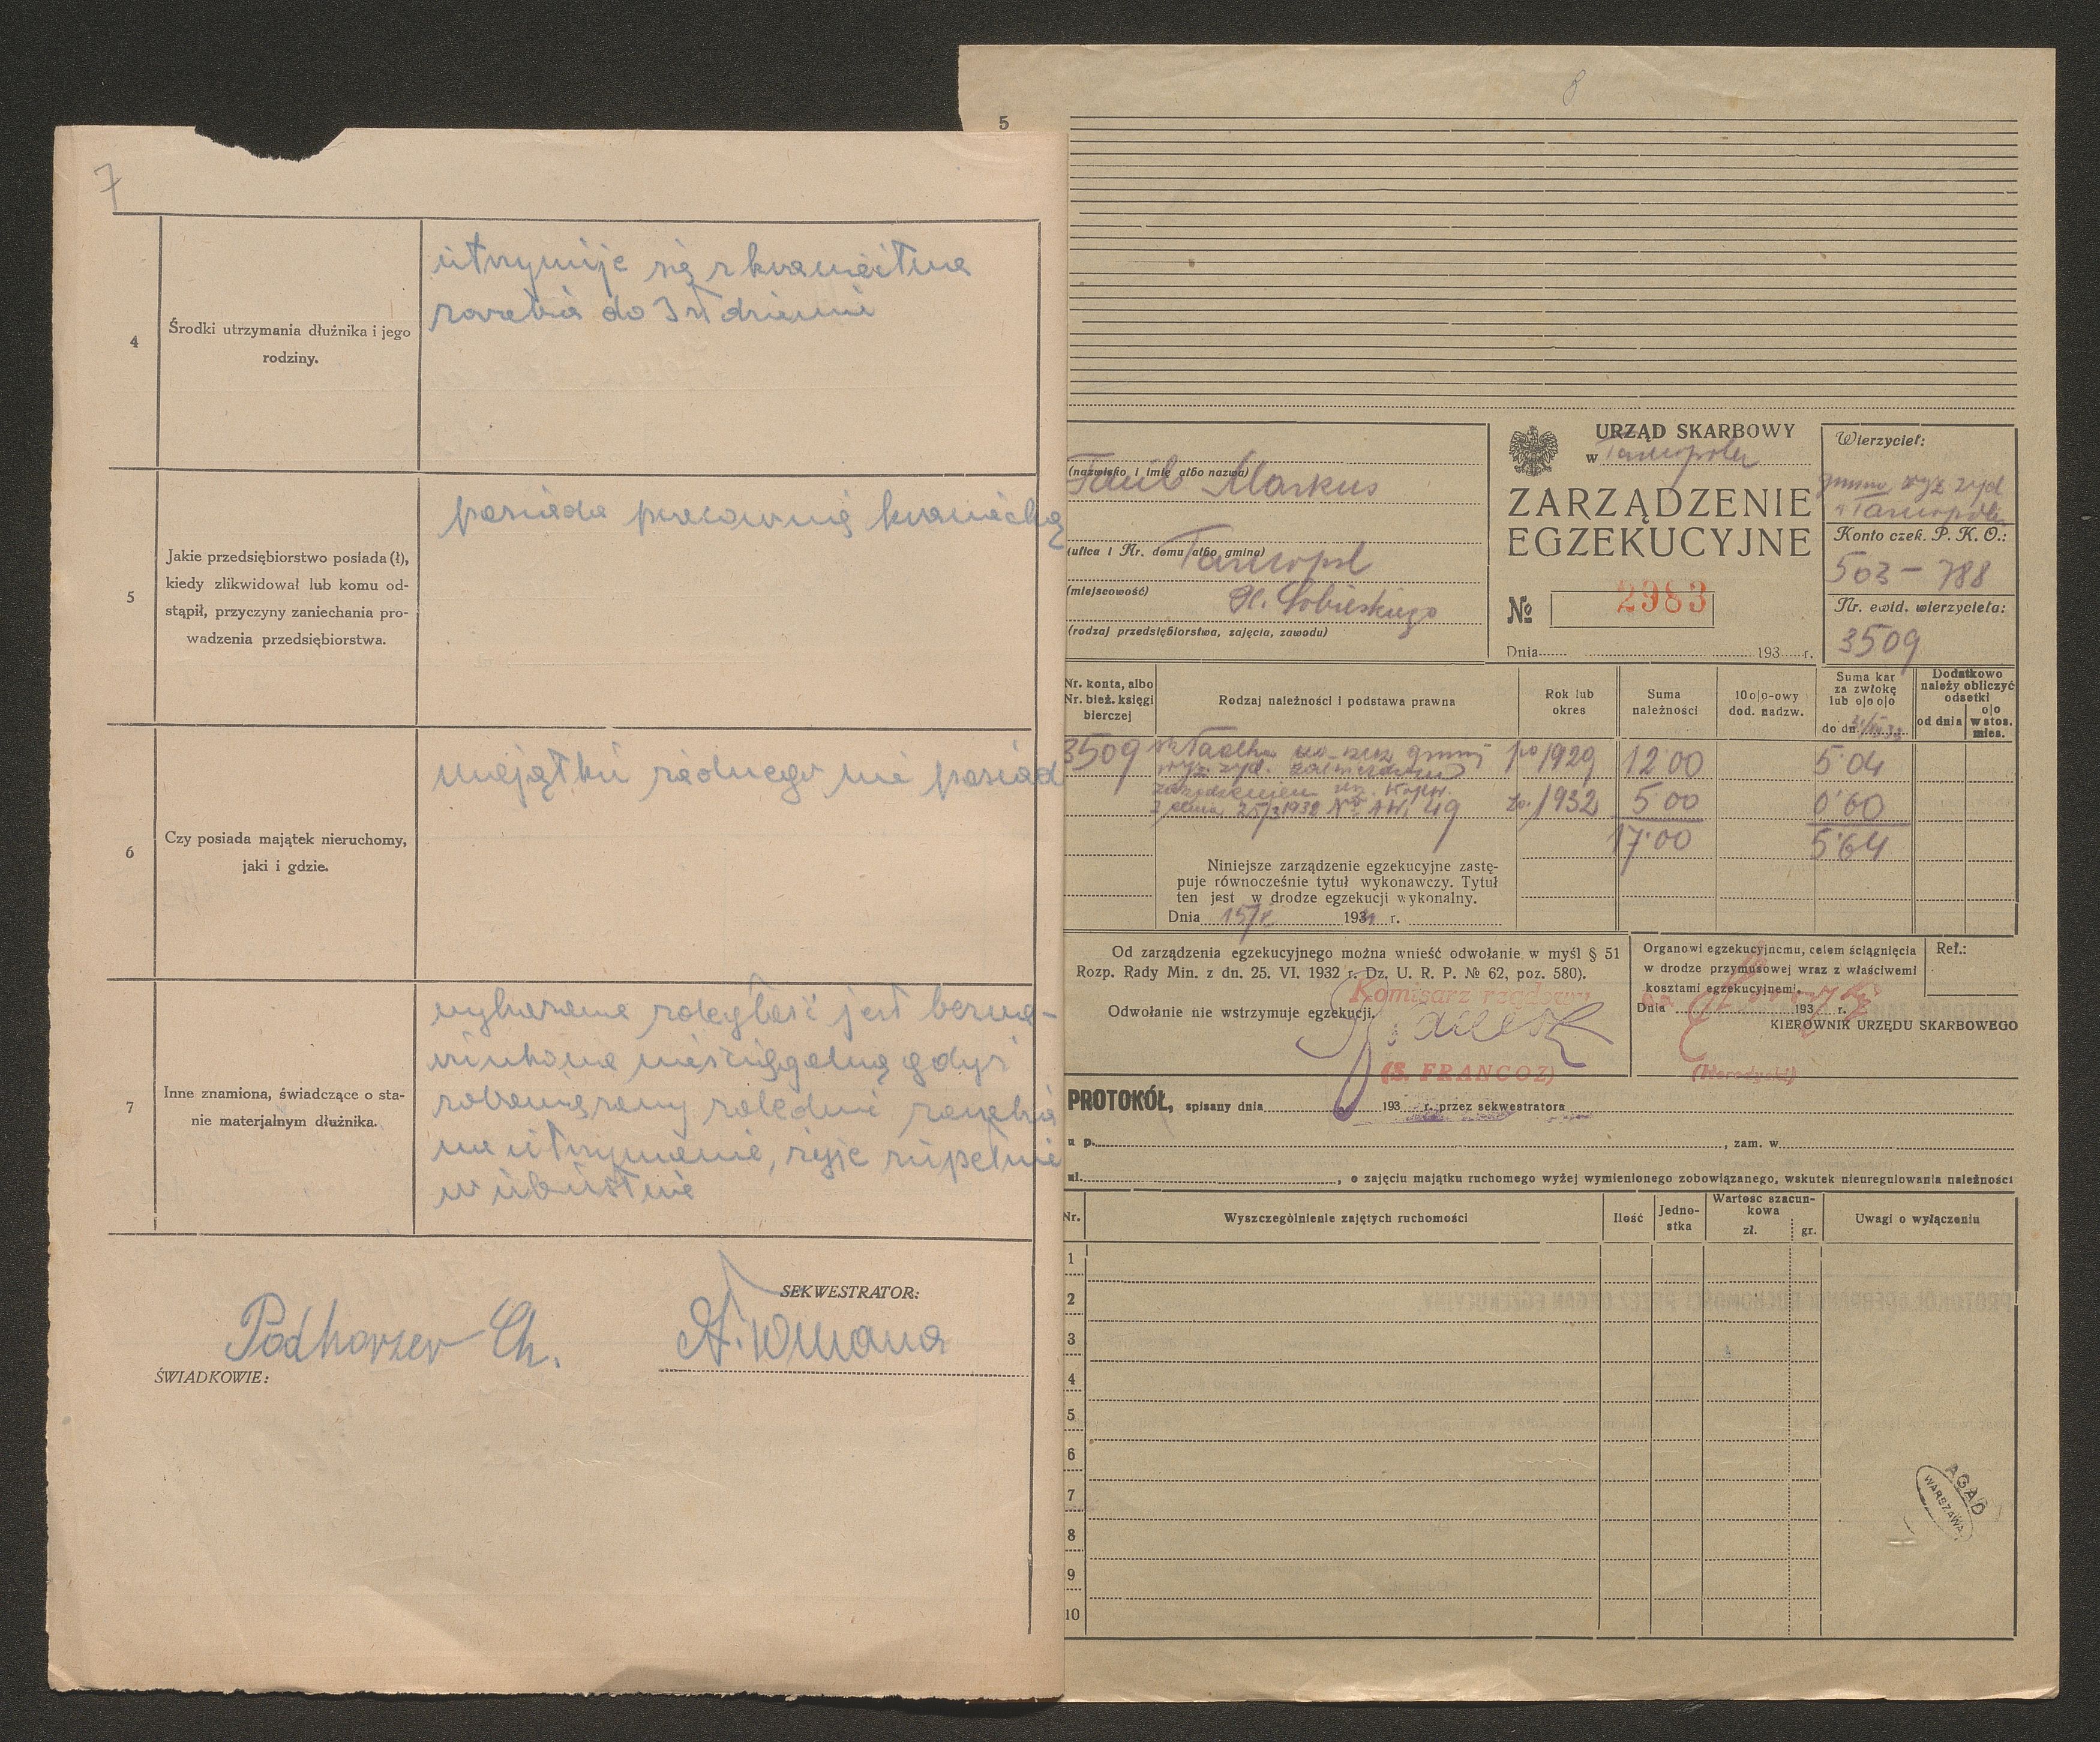 7
4
Środki utrzymania dłużnika i jego
rodziny.
utrzymuje się z krawiectwa
zarabia do 3 zł dziennie
5
Jakie przedsiębiorstwo posiada (ł),
kiedy zlikwidował lub komu od-
stąpił, przyczyny zaniechania pro-
wadzenia przedsiębiorstwa.
posiada pracownię krawiecką
6
Czy posiada majątek nieruchomy,
jaki i gdzie.
majątku żadnego nie posiad
7
Inne znamiona, świadczące o sta-
nie materjalnym dłużnika.
wykazana zaległość jest bezwa-
runkowo nieściągalną gdyż
zobowiązany zaledwie zarabia
na utrzymanie, żyje zupełnie
w ubóstwie
SEKWESTRATOR:
Podhorzer Ch.
ŚWIADKOWIE:
8
5
Taub Markus
(nazwisko i imię albo nazwa)
(ulica i Nr. domu albo gmina)
Tarnopol
(miejscowość)
Pl. Sobieskiego
(rodzaj przedsiębiorstwa, zajęcia, zawodu)
URZĄD SKARBOWY
w Tarnopolu
ZARZĄDZENIE
EGZEKUCYJNE
№ 2983
Dnia 193 r.
Wierzyciel:
gmina wyz żyd
w Tarnopolu
Konto czek. P. K. O.:
503 - 788
Nr. ewid. wierzyciela:
3509
Nr. konta, albo
Nr. bież. księgi
bierczej
Rodzaj należności i podstawa prawna
Rok lub
okres
Suma
należności
10o|o-owy
dod. nadzw.
Suma kar
za zwłokę
lub o|o o|o
do dn.
Dodatkowo
należy obliczyć
odsetki
od dnia
o|o
w stos.
mies.
3509 składka na rzecz gminy 1929 12 00 5 04
wyz. żyd. zatwierdzona
zarządzeniem
z dnia 25/3 1932 49 za 1932 5 00 0'60
17'00 5'64
Niniejsze zarządzenie egzekucyjne zastę-
puje równocześnie tytuł wykonawczy. Tytuł
ten jest w drodze egzekucji wykonalny.
Dnia 193 r.
Od zarządzenia egzekucyjnego można wnieść odwołanie w myśl § 51
Rozp. Rady Min. z dn. 25. VI. 1932 r. Dz. U. R. P. № 62, poz. 580).
Komisarz rządowy
Odwołanie nie wstrzymuje egzekucji.
(S. FRANCOZ)
Organowi egzekucyjnemu, celem ściągnięcia
w drodze przymusowej wraz z właściwemi
kosztami egzekucyjnemi.
Dnia 193 r.
KIEROWNIK URZĘDU SKARBOWEGO
Ref.:
PROTOKÓŁ, spisany dnia 193 r. przez sekwestratora
u p. , zam. w
ul. , o zajęciu majątku ruchomego wyżej wymienionego zobowiązanego, wskutek nieuregulowania należności
Nr.
Wyszczególnienie zajętych ruchomości
Ilość
Jedno-
stka
Wartość szacun-
kowa
zł. gr.
Uwagi o wyłączeniu
1
2
3
4
5
6
7
8
9
10
AGAD
WARSZAWA